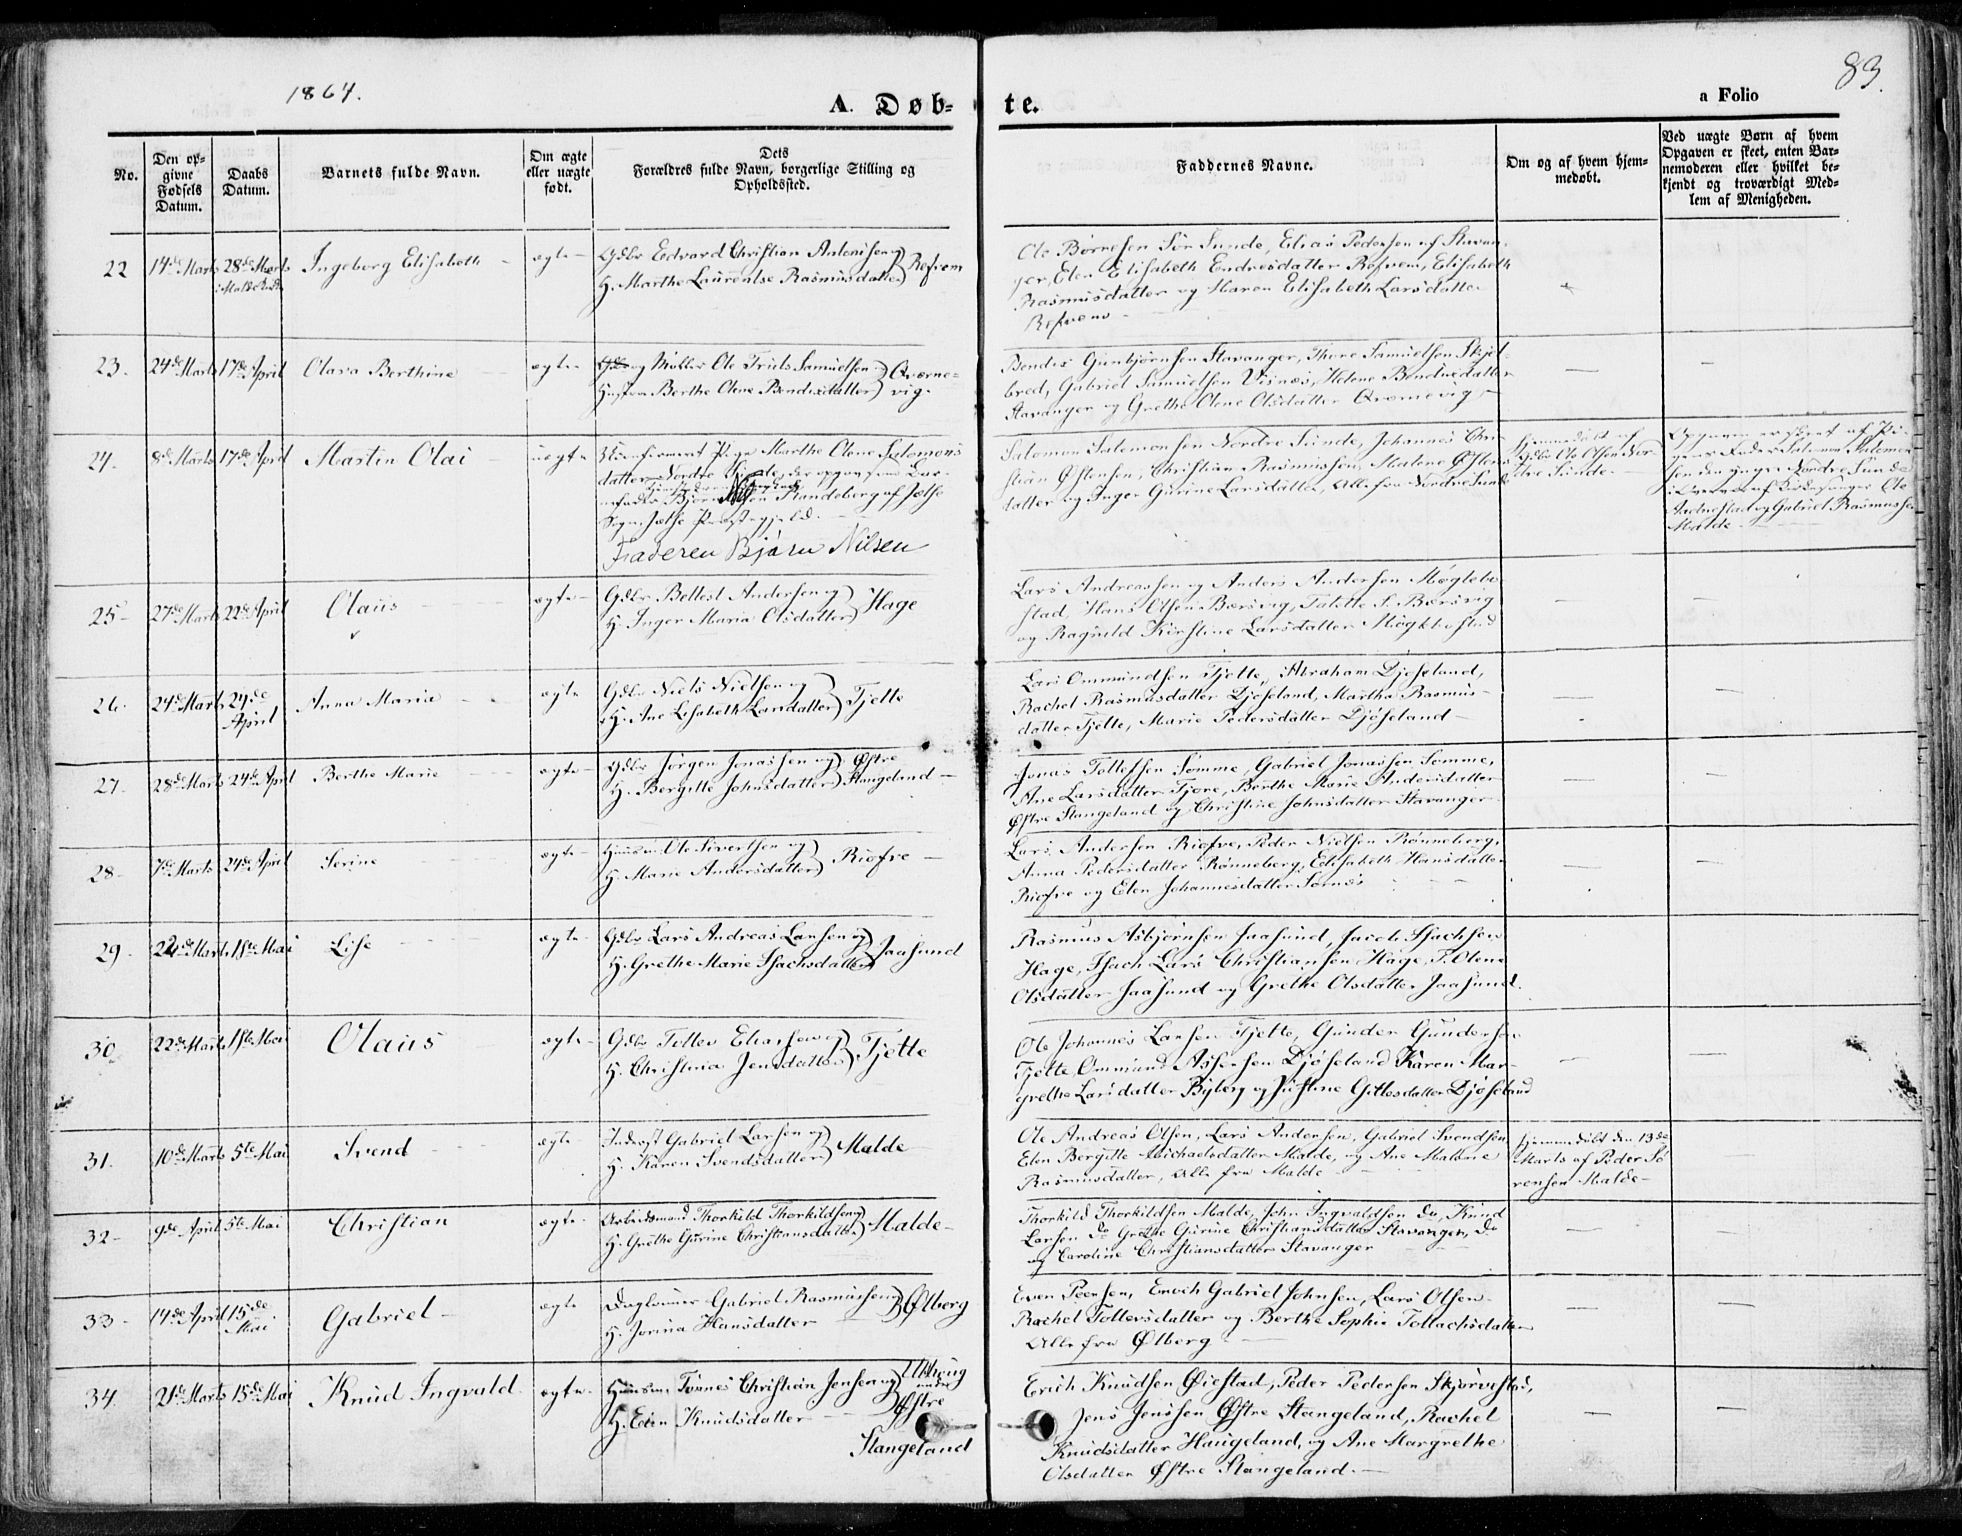 1864.
A. Døb-
te.
a Folio
83.
No.
Den op-
givne
Fødsels
Datum.
Daabs
Datum.
Barnets fulde Navn.
Om ægte
eller uægte
født.
Dets
Forældres fulde Navn, borgerlige Stilling og
Opholdssted.
Faddernes Navne.
Om og af hvem hjem-
medøbt.
Ved uægte Børn af hvem
Opgaven er skeet, enten Bar-
nemoderen eller hvilket be-
kjendt og troværdigt Med-
lem af Menigheden.
22 14de Marts 28de Marts Ingeborg Elisabeth ægte Gdbr Eedvard Christian Antonisen og
H. Marthe Laurentse Rasmusdatter Refvem
Ole Børresen Sør Sunde, Elias Pedersen af Stavan-
ger, Elen Elisabeth Endresdatter Refvem, Elisabeth
Rasmusdatter og Maren Elisabeth Larsdatter
Refvem
23. 24de Marts 17de April Olava Berthine ægte og Møller Ole Friis Samuelsen Qværne-
Hustru Berthe Olene Bendixdatter vig.
Bendix Gunbjørnsen Stavanger, Thore Samuelsen Skjel-
bred, Gabriel Samuelsen Visnæs, Helene Bendixdatter
Stavanger og Grethe Olene Olsdatter Qværnevig
24. 8de Marts 17de April Martin Olai uægte Ukonfirmeret Pige Marthe Olene Salomons
datter Nordre Sunde, der opgav som Bar-
nefader Bjørn Randeberg af Jelse
Sogn, Jelse Præstegjeld.
Faderen Bjørn Nilsen
Salomon Salomonsen Nordre Sunde, Johannes Chri-
stian Østensen, Christian Rasmussen, Malene Østens
datter og Inger Gurine Larsdatter, Alle fra Nordre Sunde
Hjemmedøbt af
Gdbr Ole Olsen Nor-
dre Sunde.
Opgaven er skeet af Pi-
gens Fader Salomon Salomon-
sen den yngre Nordre Sunde
i Overvær af Kirkesanger Ole
og Gabriel Rasmussen
Malde
25 27de Marts 22de April Olaus ægte Gdbr Bellest Andersen og
H. Inger Maria Olsdatter Hage
Lars Andreassen og Anders Andersen Møglebo-
stad, Hans Olsen Børsvig, Talette S. Børsvig
og Ragnild Kirstine Larsdatter Møglebostad
26. 24de Marts 24de
April
Anna Maria ægte Gdbr Niels Nielsen og
H. Ane Lisabeth Larsdatter Tjelte
Lars Ommundsen Tjelte, Abraham Djøseland,
Rachel Rasmusdatter Djøseland, Martha Rasmus-
datter Tjelte, Marie Pedersdatter Djøseland
27. 28de Marts 24de April Berthe Marie ægte Gdbr Jørgen Jonassen og Østre
H. Bergitte Johnsdatter Stangeland
Jonas Tollefsen Sømme, Gabriel Jonassen Sømme,
Ane Larsdatter Tjore, Berthe Marie Andersdatter
Østre Stangeland og Christine Johnsdatter Stavanger
28. 7de Marts 24de April Serine ægte Huusm. Ole Sivertsen og
H. Marie Andersdatter Risfre
Lars Andersen Risfre, Peder Nielsen Rønneberg,
Anna Pedersdatter Rønneberg, Elisabeth Hansdatter
Risfre og Elen Johannesdatter Sørnes
29. 22de Marts 1ste Mai Lise ægte Gdbr Lars Andreas Larsen og
H. Grethe Marie Isachsdatter Jaasund
Rasmus Asbjørnsen Jaasund, Jacob Isachsen
Hage, Isach Lars Christiansen Hage, T. Olene
Olsdatter Jaasund og Grethe Olsdatter Jaasund.
30. 22de Marts 1ste Mai Olaus ægte Gdbr Tollev Eliassen og
H. Christina Jensdatter Tjelte
Ole Johannes Larsen Tjelte, Gunder Gundersen
Tjelte Ommund Assersen Djøseland Karen Mar-
grethe Larsdatter Byberg og Justine Gitlesdatter Djøseland
31. 10de Marts 5te Mai Svend ægte Inderst Gabriel Larsen og
H. Karen Svendsdatter Malde
Ole Andreas Olsen, Lars Andersen, Gabriel Svendsen
Elen Bergitte Michaelsdatter Malde, og Ane Malene
Rasmusdatter, alle fra Malde
Hjemmedøbt den 13de
Marts af Peder Sø-
rensen Malde
32. 9de April 5te Mai Christian ægte Arbeidsmand Thorkild Thorkildsen og
H. Grethe Gurine Christiansdatter Malde
Thorkild Thorkildsen Malde, John Ingvaldsen do, Knud
Larsen do Grethe Gurine Christiansdatter Stavanger, do
og Caroline Christiansdatter Stavanger
33. 14de April 15de
Mai
Gabriel ægte Daglønner Gabriel Rasmussen og Ølberg
H. Jorina Hansdatter
Even Peersen, Enoch Gabriel Johnsen, Lars Olsen
Rachel Tollevsdatter og Berthe Sophie Tollachsdatter
Alle fra Ølberg
34. 21de Marts 15de Mai Knud Ingvald ægte Huusm. Tønnes Christian Jensen og
under
H. Elen Knudsdatter Østre
Stangeland
Erich Knudsen Øiestad, Peder Pedersen Skjørvestad,
Jens Jensen Østre Stangeland, Rachel
Knudsdatter Haugeland, og Ane Margrethe
Olsdatter Østre Stangeland.